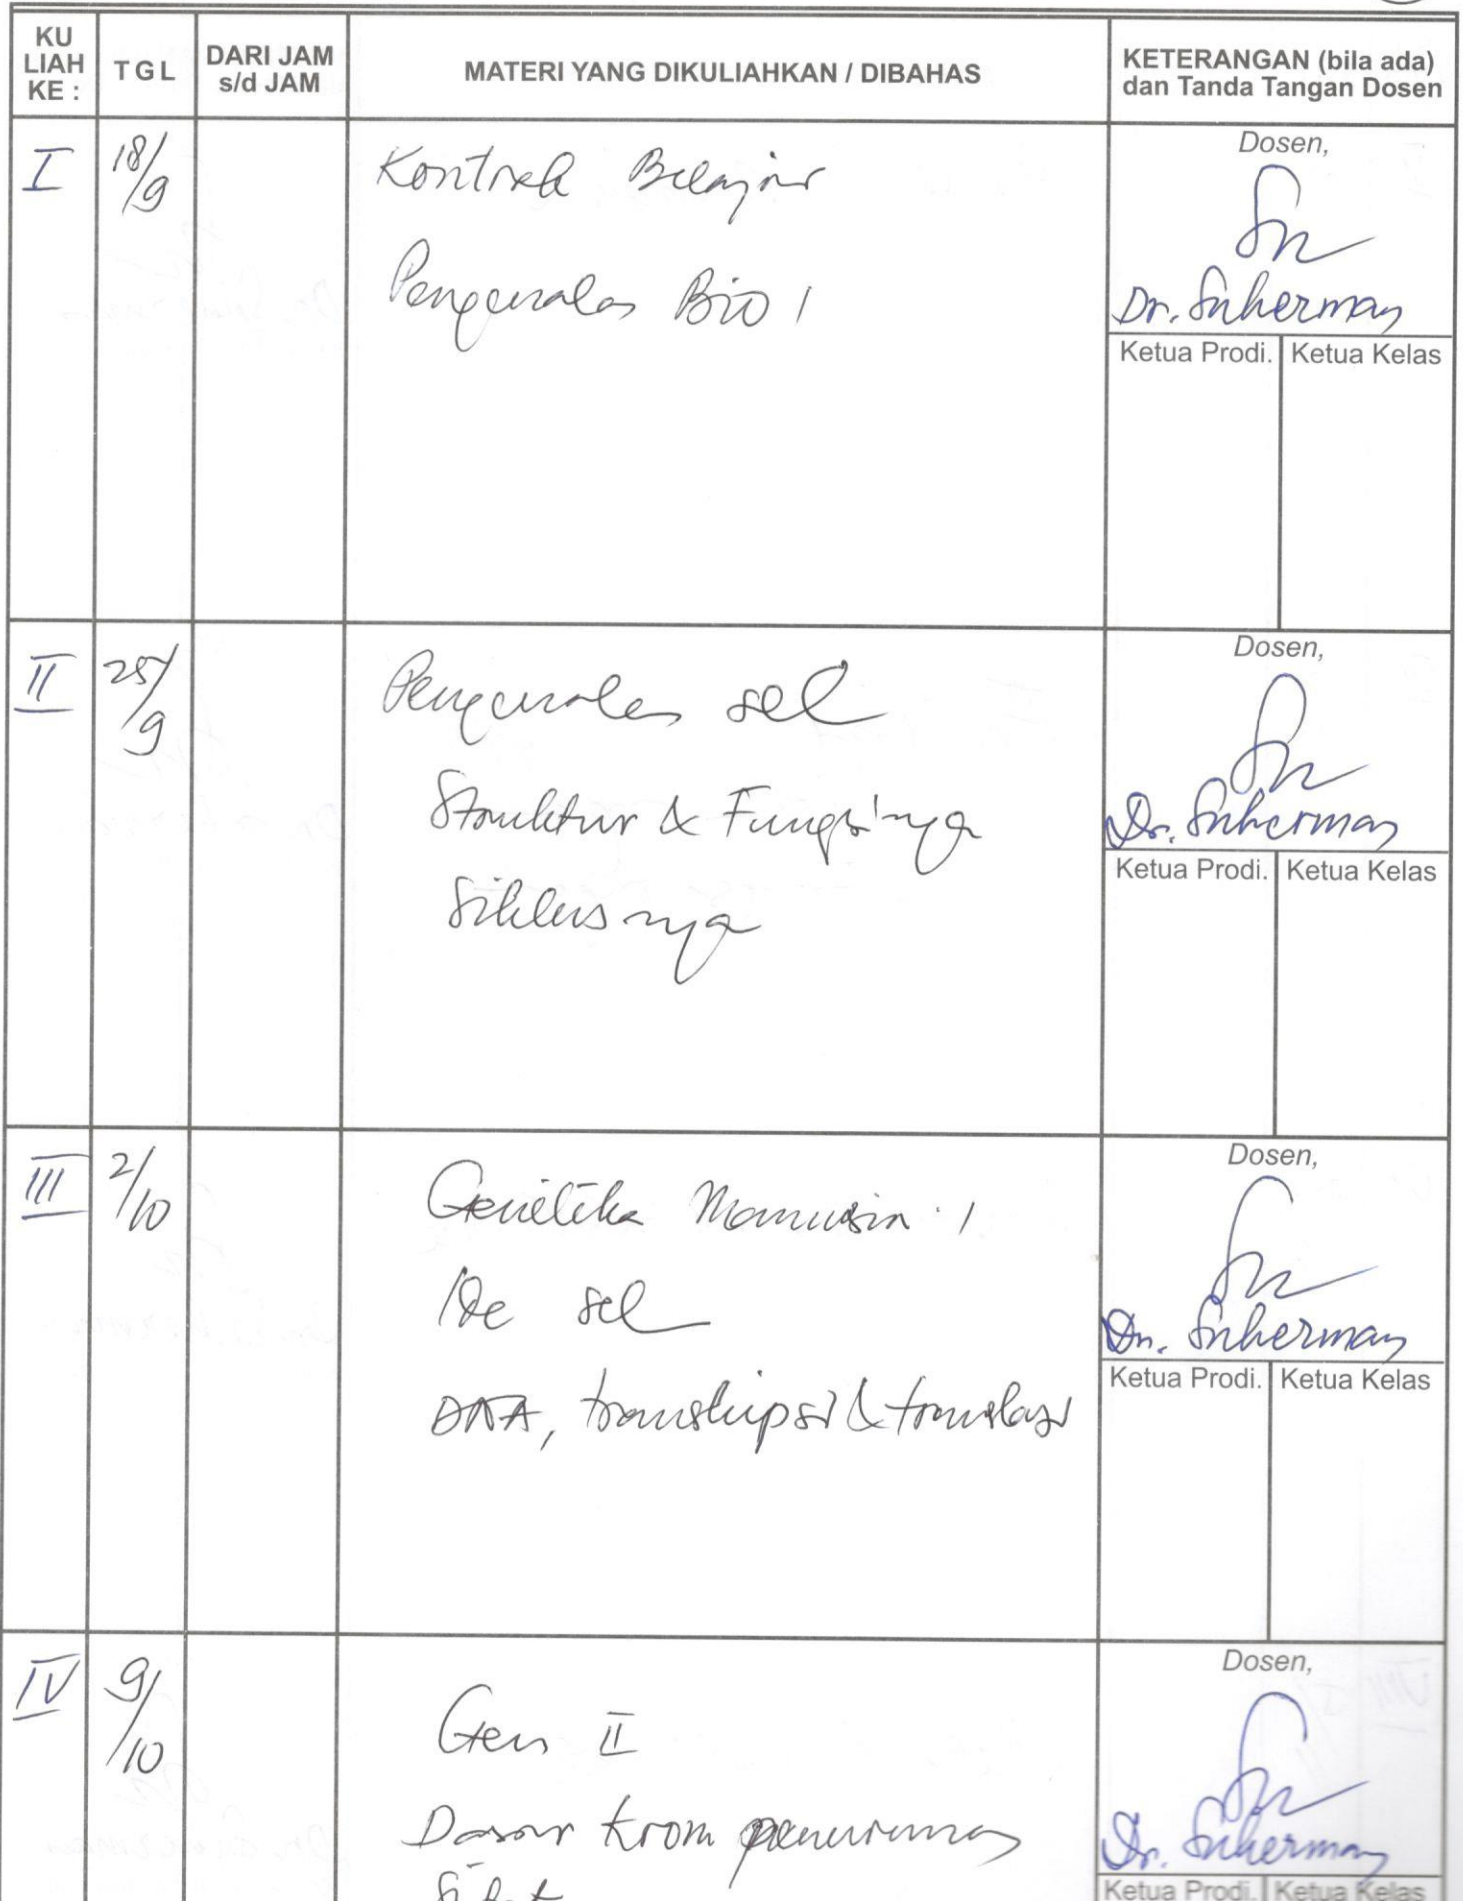 KU LIAH KE :
TGL
DARI JAM s/d JAM
MATERI YANG DIKULIAHKAN / DIBAHAS
KETERANGAN (bila ada) dan Tanda Tangan Dosen
I
18/9
Kontrak Belajar
Pengenalan Bio 1
Dosen,
Dr. Suherman
Ketua Prodi.
Ketua Kelas
II
25/9
Pengenalan sel
Struktur & Fungsinya
Siklusnya
Dosen,
Dr. Suherman
Ketua Prodi.
Ketua Kelas
III
2/10
Genetika Manusia 1
sel
DNA, transkripsi & translasi
Dosen,
Dr. Suherman
Ketua Prodi.
Ketua Kelas
IV
9/10
Gen II
Dasar krom penurunan
Sifat
Dosen,
Dr. Suherman
Ketua Prodi.
Ketua Kelas